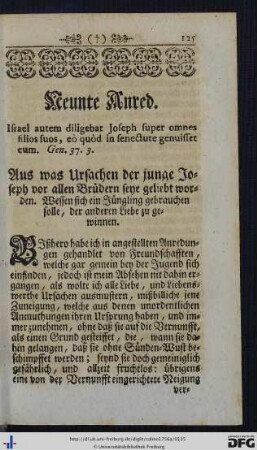 (†) 125
Neunte Anred.
Israel autem diligebat Joseph super omnes
filios suos, eò quòd in senectute genuisset
eum. Gen. 37. 3.
Aus was Ursachen der junge Jo-
seph vor allen Brüdern seye geliebt wor-
den. Wessen sich ein Jüngling gebrauchen
solle, der anderen Liebe zu ge-
winnen.
BIßhero habe ich in angestellten Anredun-
gen gehandlet von Freundschafften,
welche gar gemein bey der Jugend sich
einfinden, jedoch ist mein Absehen nit dahin er-
gangen, als wolte ich alle Liebe, und Liebens-
werthe Ursachen ausmustern, mißbillche jene
Zuneigung, welche aus denen unordentlichen
Anmuthungen ihren Ursprung haben, und im-
mer zunehmen, ohne daß sie auf die Vernunfft,
als einen Grund gesteiffet, die, wann sie da-
hin gelangen, daß sie ohne Sünden-Wust be-
schimpffet werden; seynd sie doch gemeiniglich
gefährlich, und allzeit fruchtlos: übrigens
eine von der Vernunfft eingerichtete Neigung
ver-
http://dl.ub.uni-freiburg.de/diglit/callenl1750a/0135
© Universitätsbibliothek Freiburg
gefördert durch die
DFG